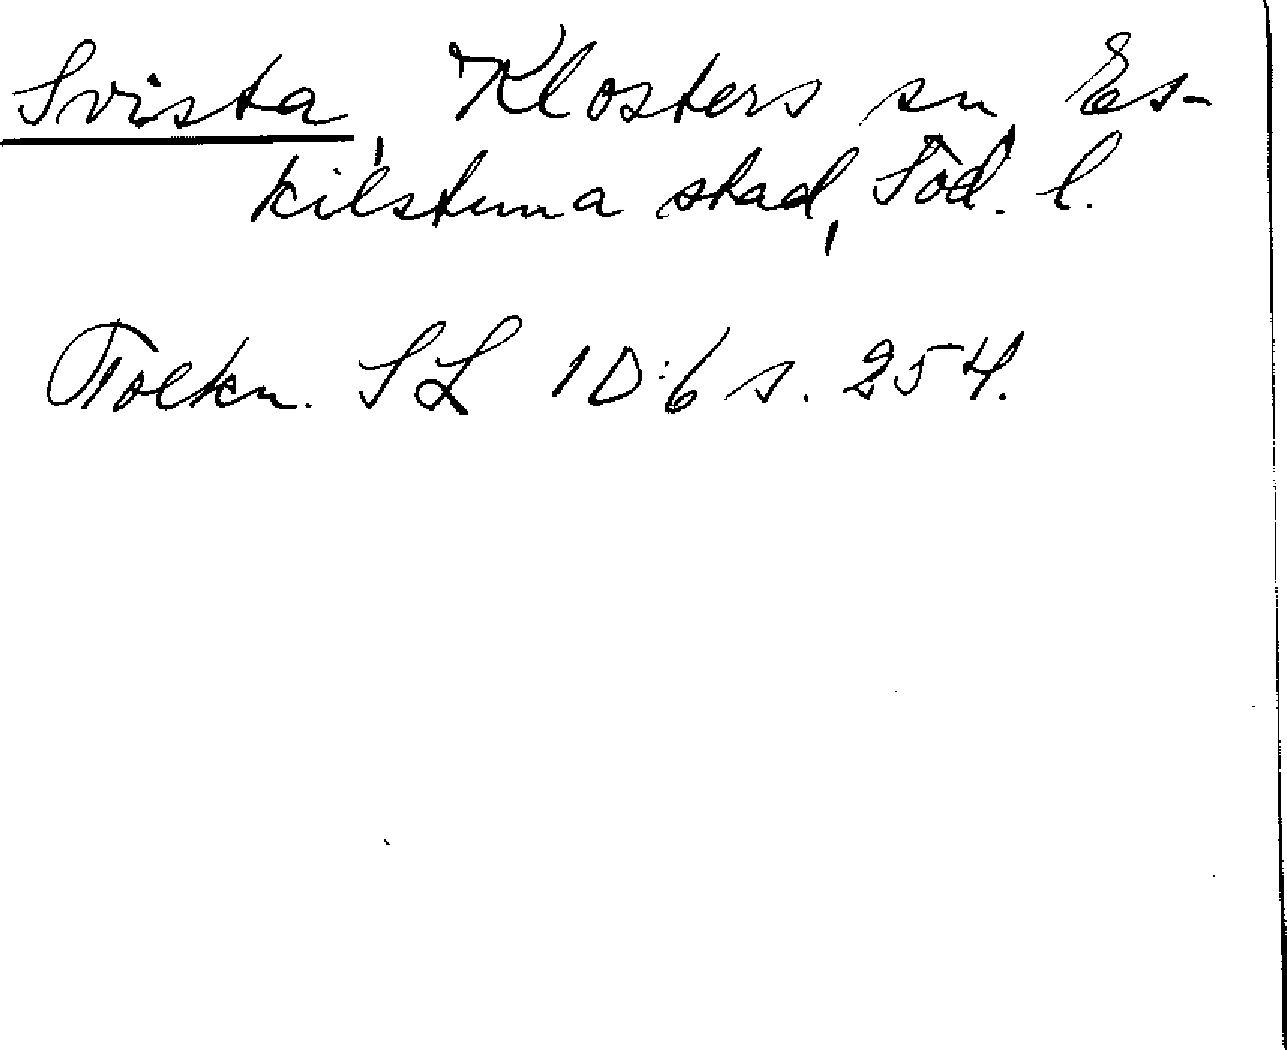 Svista, Klosters sn, Es-
kilstuna stad, Söd. l.
Tolkn. SL 1D:6 s. 254.